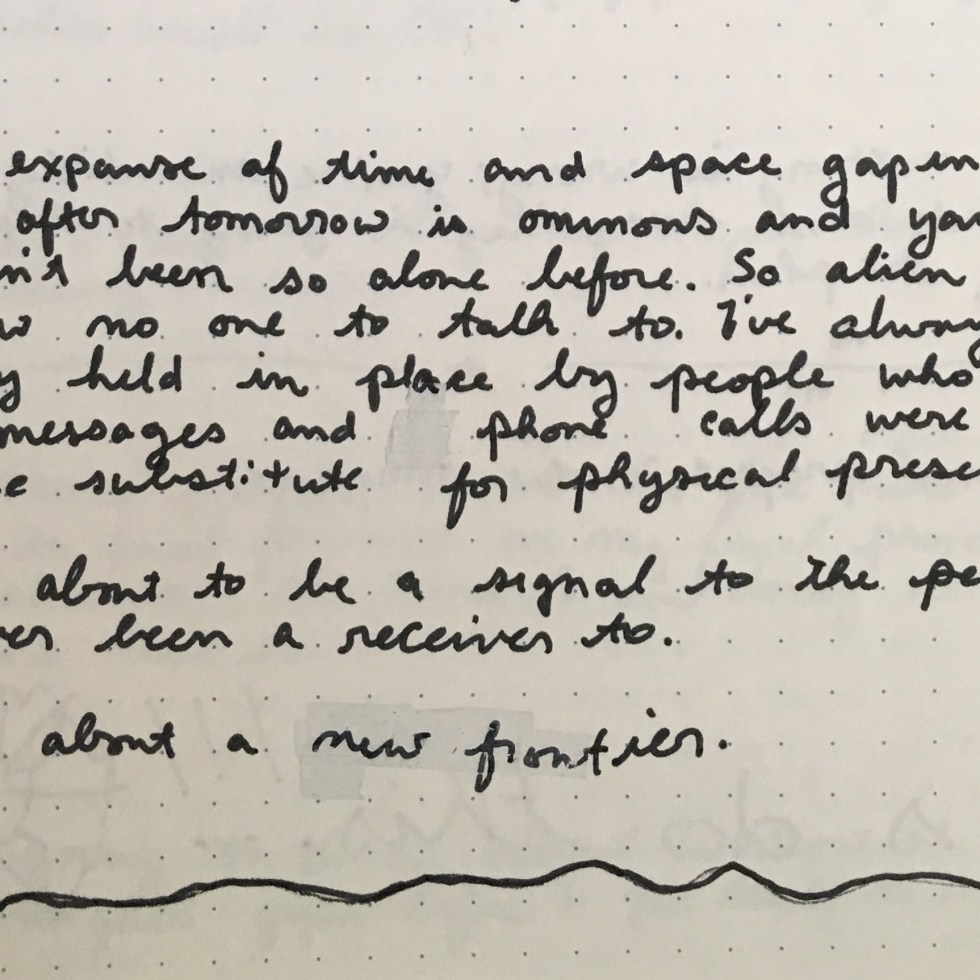 expanse of time and space gapin
after tomorrow is ominous and yaw
n't been so alone before. So alien
w no one to talk to. I've alway
y held in place by people who
messages and phone calls were
e substitute for physical prese
about to be a signal to the pe
ver been a receiver to.
about a new frontier.